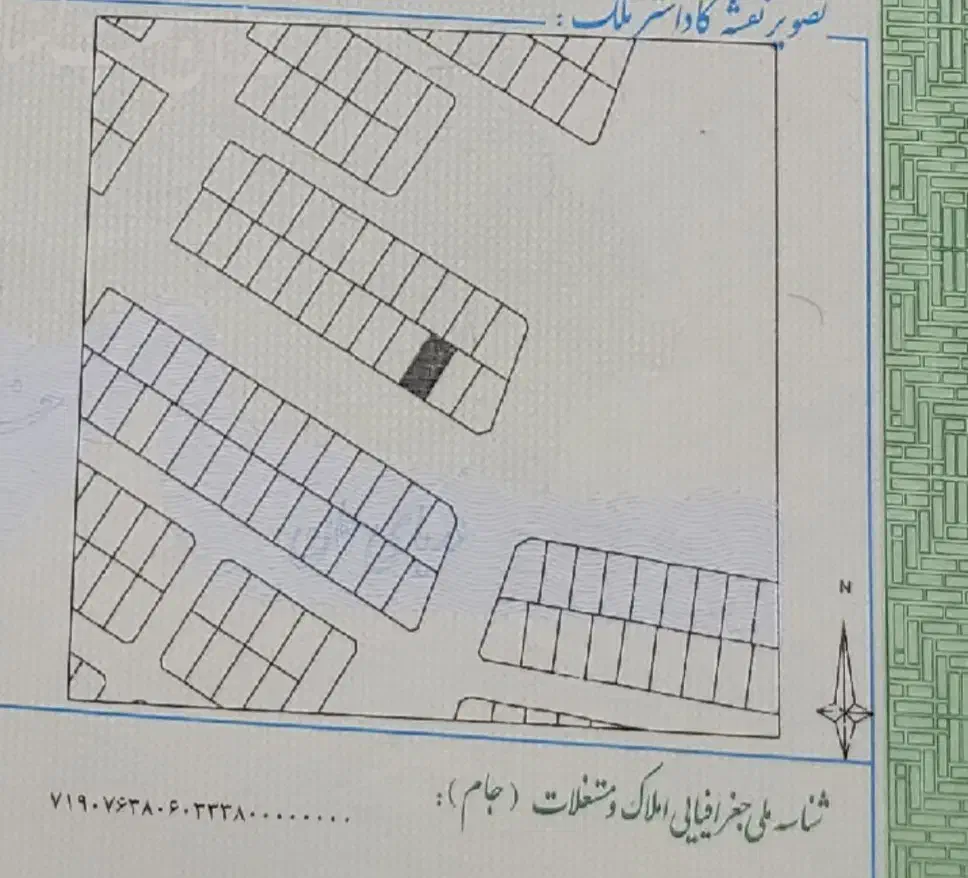 تصویر نقشه کاداستر ملک :
N
شناسه ملی جغرافیایی املاک و مستغلات (جام):
۷۱۹۰۷۶۳۸۰۶۰۳۳۳۸۰۰۰۰۰۰۰۰۰